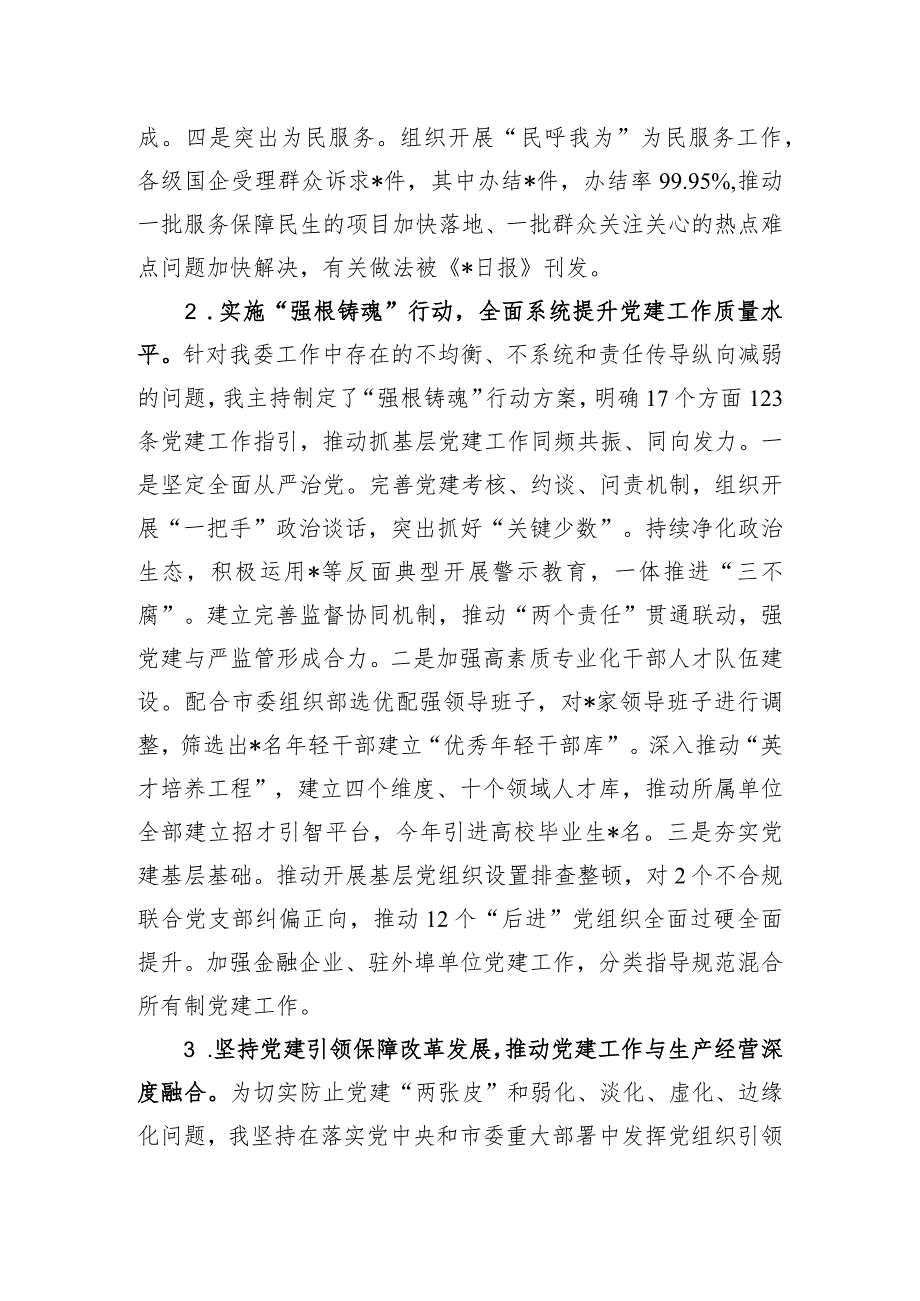 成。四是突出为民服务。组织开展“民呼我为”为民服务工作，
各级国企受理群众诉求*件，其中办结*件，办结率 99.95%,推动
一批服务保障民生的项目加快落地、一批群众关注关心的热点难
点问题加快解决，有关做法被《*日报》刊发。
2 .实施“强根铸魂”行动，全面系统提升党建工作质量水
平。针对我委工作中存在的不均衡、不系统和责任传导纵向减弱
的问题，我主持制定了“强根铸魂”行动方案，明确 17 个方面 123
条党建工作指引，推动抓基层党建工作同频共振、同向发力。一
是坚定全面从严治党。完善党建考核、约谈、问责机制，组织开
展“一把手”政治谈话，突出抓好“关键少数”。持续净化政治
生态，积极运用*等反面典型开展警示教育，一体推进“三不
腐”。建立完善监督协同机制，推动“两个责任”贯通联动，强
党建与严监管形成合力。二是加强高素质专业化干部人才队伍建
设。配合市委组织部选优配强领导班子，对*家领导班子进行调
整，筛选出*名年轻干部建立“优秀年轻干部库”。深入推动“英
才培养工程”，建立四个维度、十个领域人才库，推动所属单位
全部建立招才引智平台，今年引进高校毕业生*名。三是夯实党
建基层基础。推动开展基层党组织设置排查整顿，对 2 个不合规
联合党支部纠偏正向，推动 12 个“后进”党组织全面过硬全面
提升。加强金融企业、驻外埠单位党建工作，分类指导规范混合
所有制党建工作。
3 .坚持党建引领保障改革发展，推动党建工作与生产经营深
度融合。为切实防止党建“两张皮”和弱化、淡化、虚化、边缘
化问题，我坚持在落实党中央和市委重大部署中发挥党组织引领